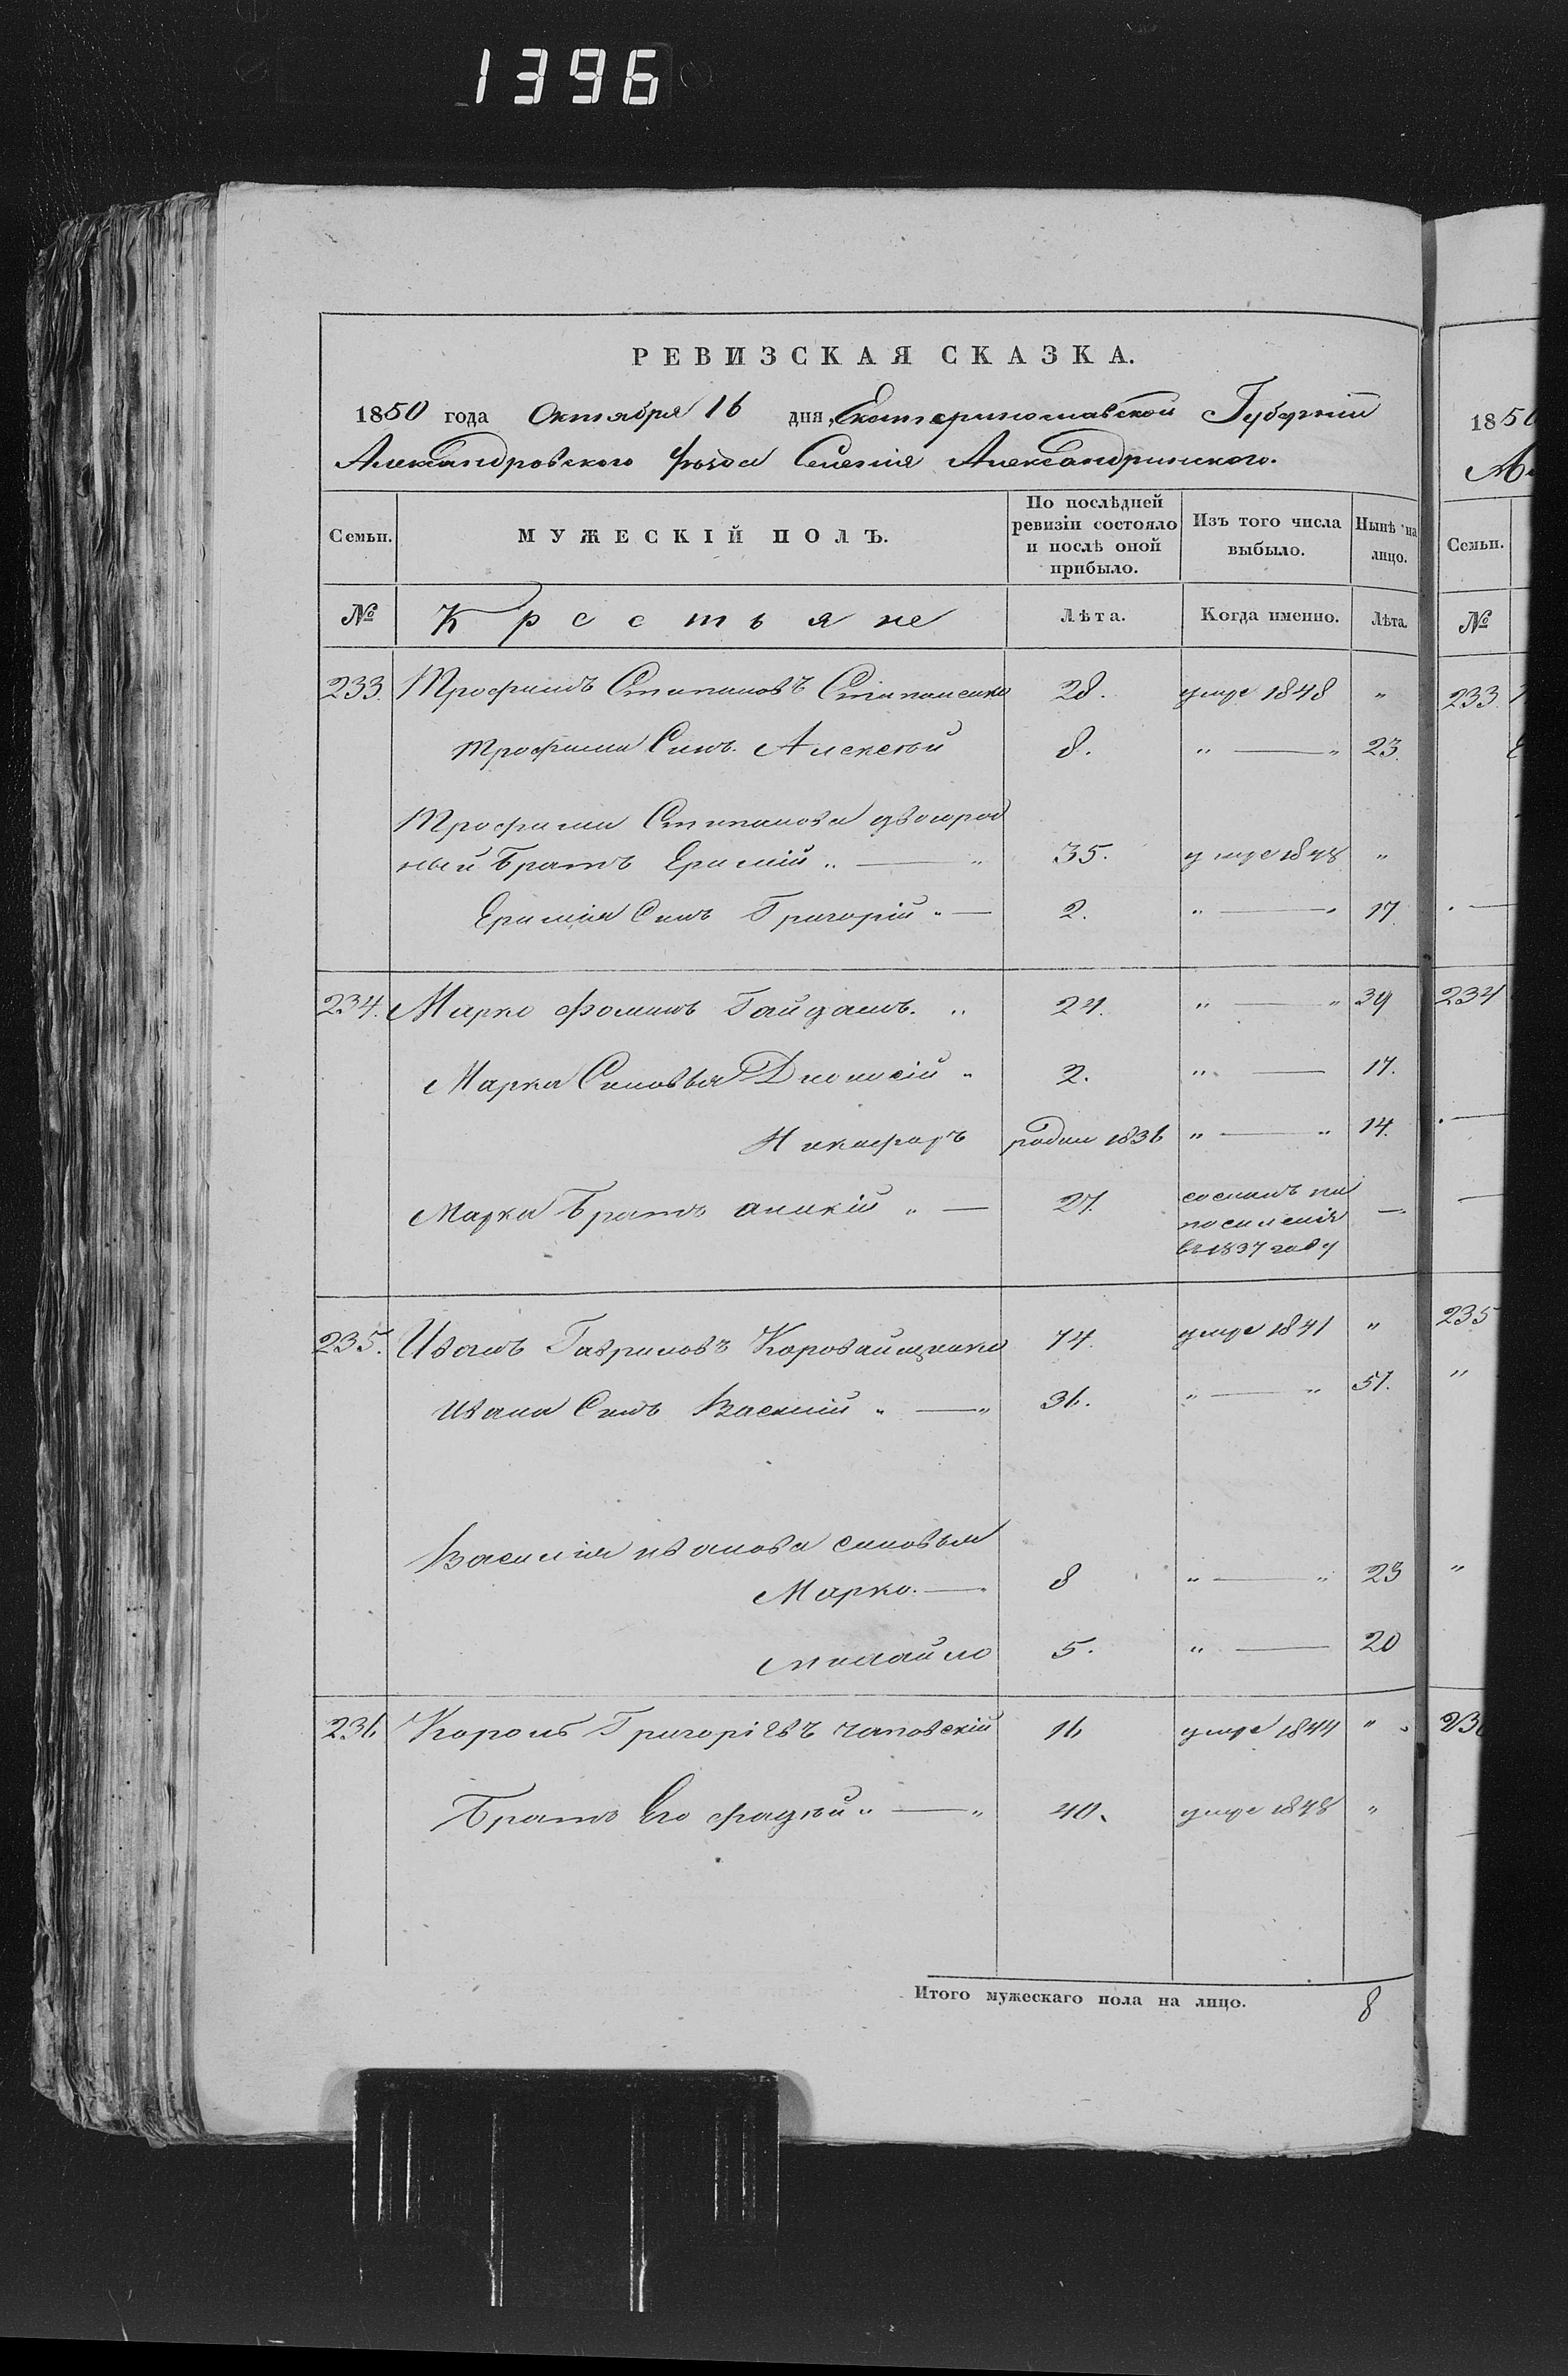 1396
РЕВИЗСКАЯ СКАЗКА.
1850 года Октября 16 дня, Екатеринославской Губерніи
Александровского уѣзда Селенія Александринского.
Семьи. МУЖЕСКІЙ ПОЛЪ. По послѣдней ревизіи состояло и послѣ оной прибыло. Изъ того числа выбыло. Нынѣ на лицо.
№ Крестьяне Лѣта. Когда именно. Лѣта.
233 Трофимъ Стипановъ Стипаненко 28. умре 1848 "
Трофима Синъ Алексѣй 8. " — " 23.
Трофима Стипанова двоюрод
ный Братъ Еримій " — " 35. умре 1848 "
Еримія Синъ Григорій " — 2. " — " 17.
234. Марко Фоминъ Гайдамъ. " 24. " — " 39
Марка Синовья Дионисій " 2. " — 17.
Никифоръ родил 1836 " — " 14.
Марка Братъ аникій " — 27. сосланъ на
поселенія
въ 1837 году —
235. Иванъ Гавриловъ Коровайщенко 74. умре 1841 "
Ивана Синъ Василій " — " 36. " — " 51.
Василія иванова синовья
Марко. — 8 " — " 23
михайло 5. " — 20
236 Король Григоріевъ чаповскій 16 умре 1844 "
Братъ Его фадѣй " — " 40. умре 1848 "
Итого мужескаго пола на лицо. 8
1850
Семьи.
№
233.
234
235